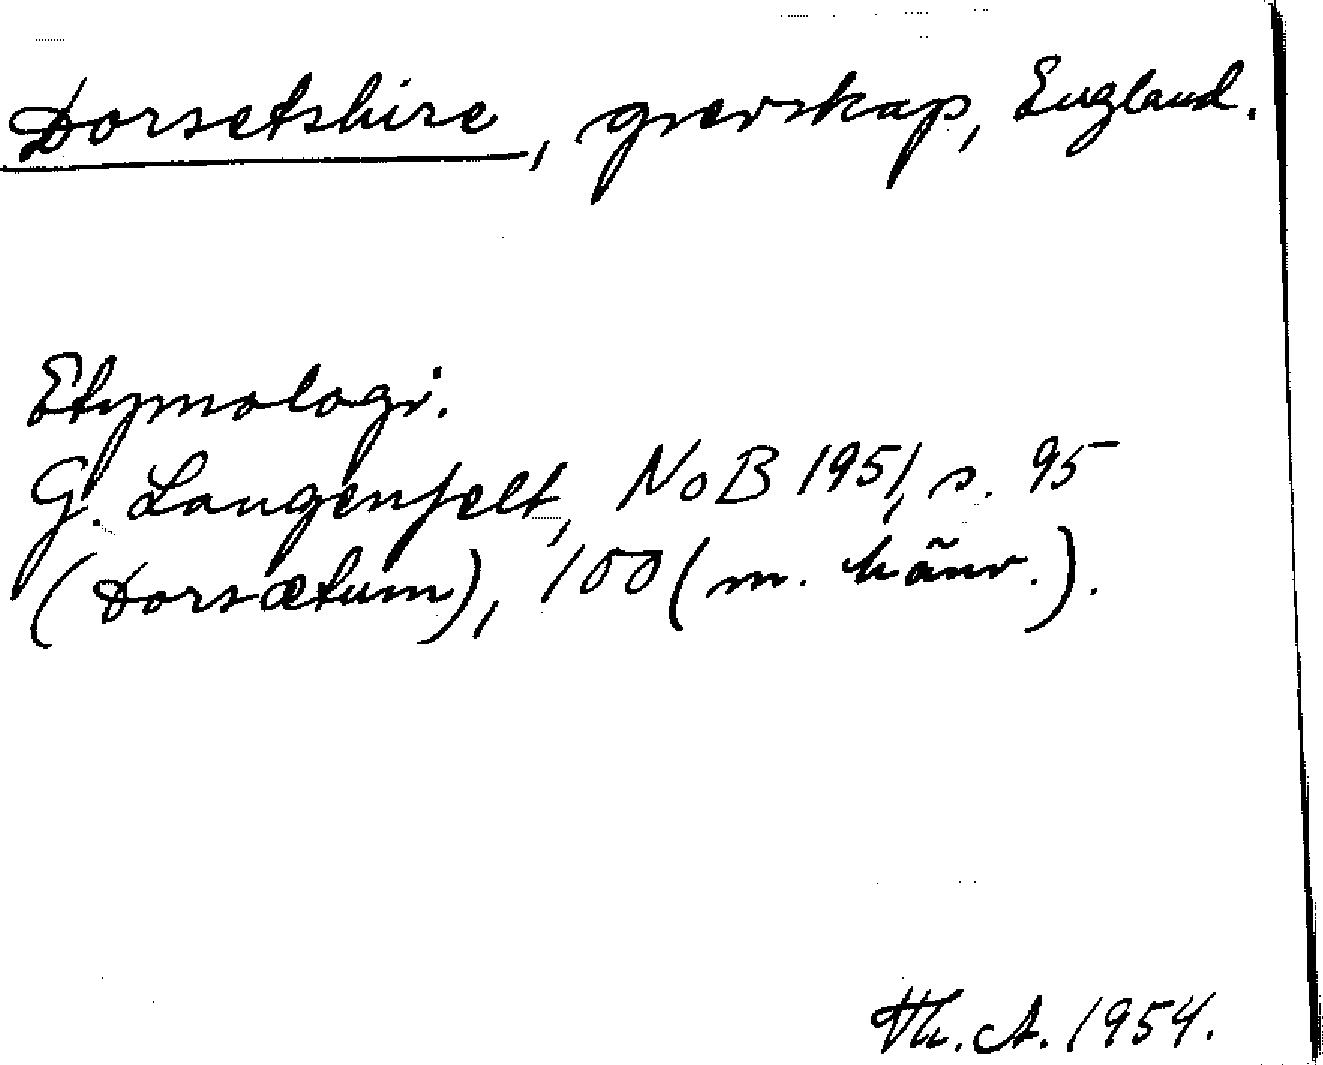 Dorsetshire, grevskap, England.
Etymologi.
G. Langenfelt, NoB 1951, s. 95
(Dorsætum), 100 (m. hänv.).
Th. A. 1954.